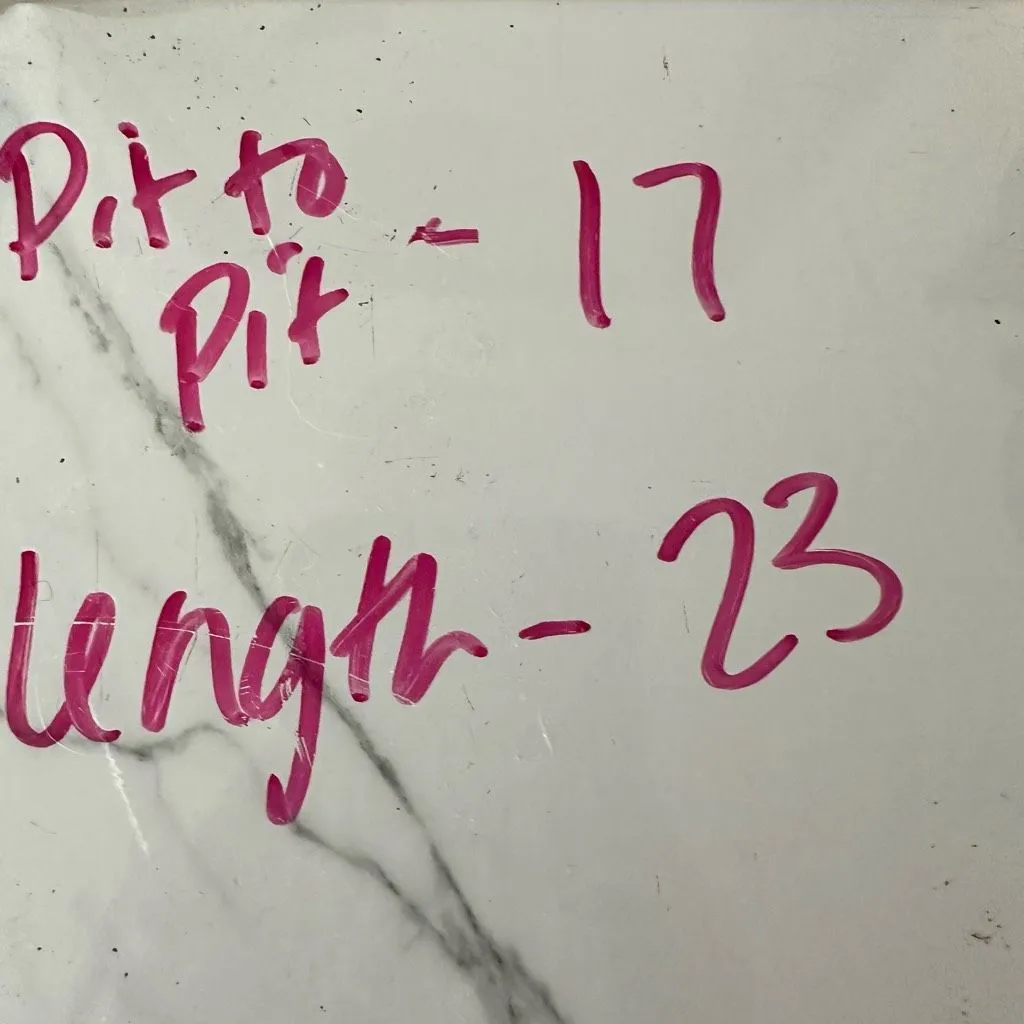 Pit to - 17
Pit
length - 23